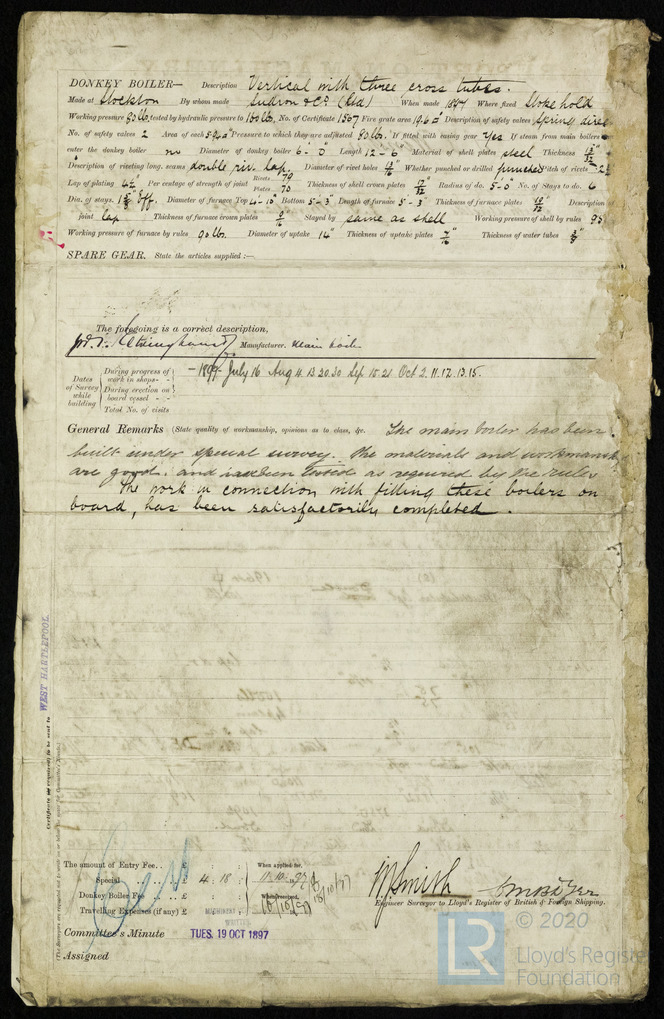 DONKEY BOILER— Description Vertical with three cross tubes.
Made at Stockton By whom made Sudron & Co (Ltd) When made 1897 Where fixed Stokehold
Working pressure 80 lb tested by hydraulic pressure to 160 lbs. No. of Certificate 1567 Fire grate area 19.6 Description of safety valves Spring direct
No. of safety valves 2 Area of each 5.9 Pressure to which they are adjusted 80 lb. If fitted with easing gear Yes If steam from main boilers can
enter the donkey boiler no Diameter of donkey boiler 6-0" Length 12-6" Material of shell plates steel Thickness
Description of riveting long. seams double riv. lap Diameter of rivet holes Whether punched or drilled punched Pitch of rivets
Lap of plating Per centage of strength of joint Rivets 79 Plates 70 Thickness of shell crown plates Radius of do. 5-0" No. of Stays to do. 6
Dia. of stays. Diameter of furnace Top 4-10" Bottom 5-3" Length of furnace 5-3" Thickness of furnace plates Description of
joint lap Thickness of furnace crown plates Stayed by same as shell Working pressure of shell by rules 93
Working pressure of furnace by rules 90 lb. Diameter of uptake 14" Thickness of uptake plates Thickness of water tubes
SPARE GEAR. State the articles supplied:—
The foregoing is a correct description,
Manufacturer. Main boiler
Dates of Survey while building
During progress of work in shops - - 1897 July 16 Aug 4. 13 20. 30 Sep 15. 21 Oct 2. 11. 12. 13. 15.
During erection on board vessel - - -
Total No. of visits
General Remarks (State quality of workmanship, opinions as to class, &c. The main boiler has been
built under special survey. The materials and workmanship
are good. and has been tested as required by the rules
The work in connection with fitting these boilers on
board, has been satisfactorily completed.
WEST HARTLEPOOL
Certificate (if required) to be sent to
(The Surveyors are requested not to write on or below the space for Committee's Minute.)
The amount of Entry Fee . . £ : :
When applied for,
Special . . . . . £ 4 . 18 :
11.10.97
18/10/97
Donkey Boiler Fee . . . £ : :
When received,
Travelling Expenses (if any) £ : :
MACHINERY
WRITTEN
WM Smith
Engineer Surveyor to Lloyd's Register of British & Foreign Shipping.
Committee's Minute TUES. 19 OCT 1897
Assigned
© 2020
LR
Lloyd's Register
Foundation